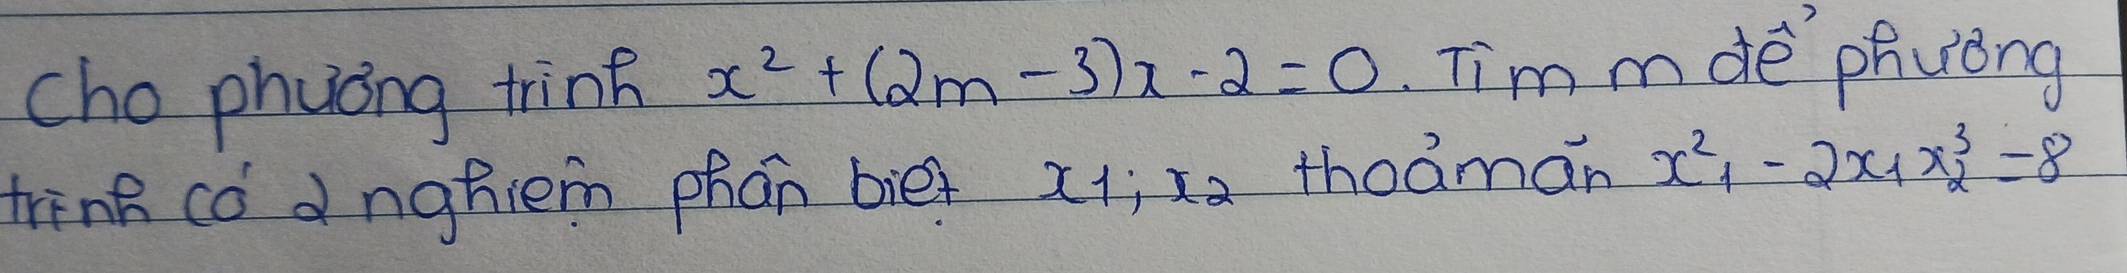 Cho phương trình x² + (2m - 3)x - 2 = 0. Tìm m để phương
trình có 2 nghiệm phân biệt x1; x2 thoả mãn x²₁ - 2x₁x³₂ = 8